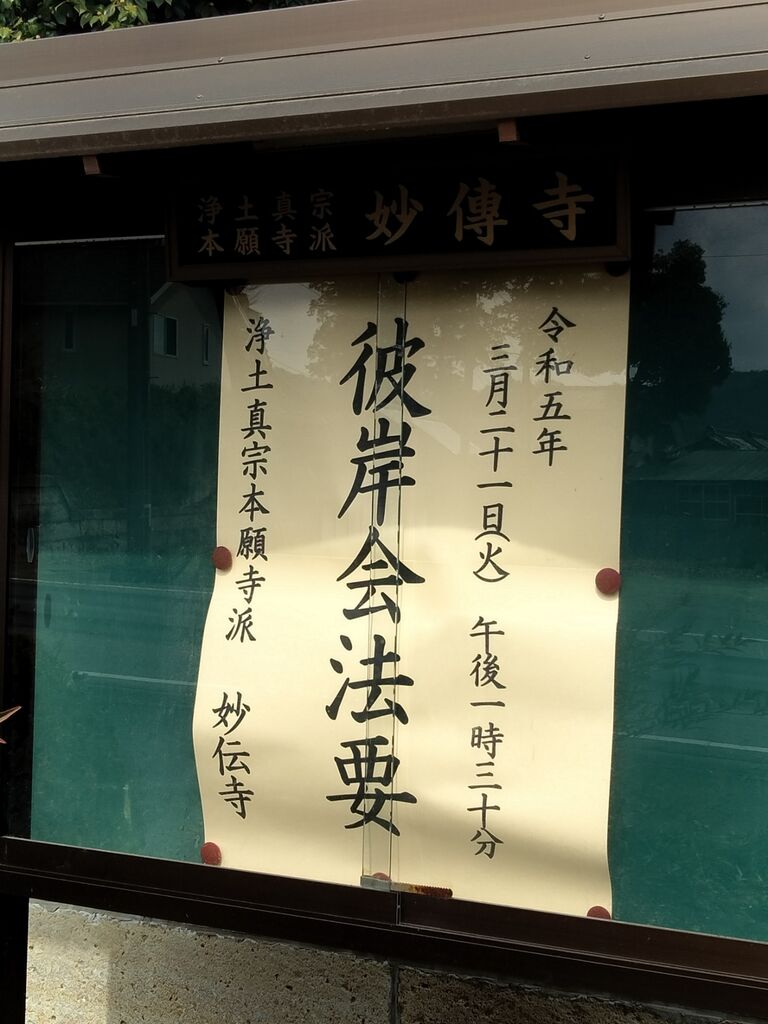 浄土真宗
本願寺派
妙傳寺
令和五年
三月二十一日(火) 午後一時三十分
彼岸会法要
浄土真宗本願寺派 妙伝寺